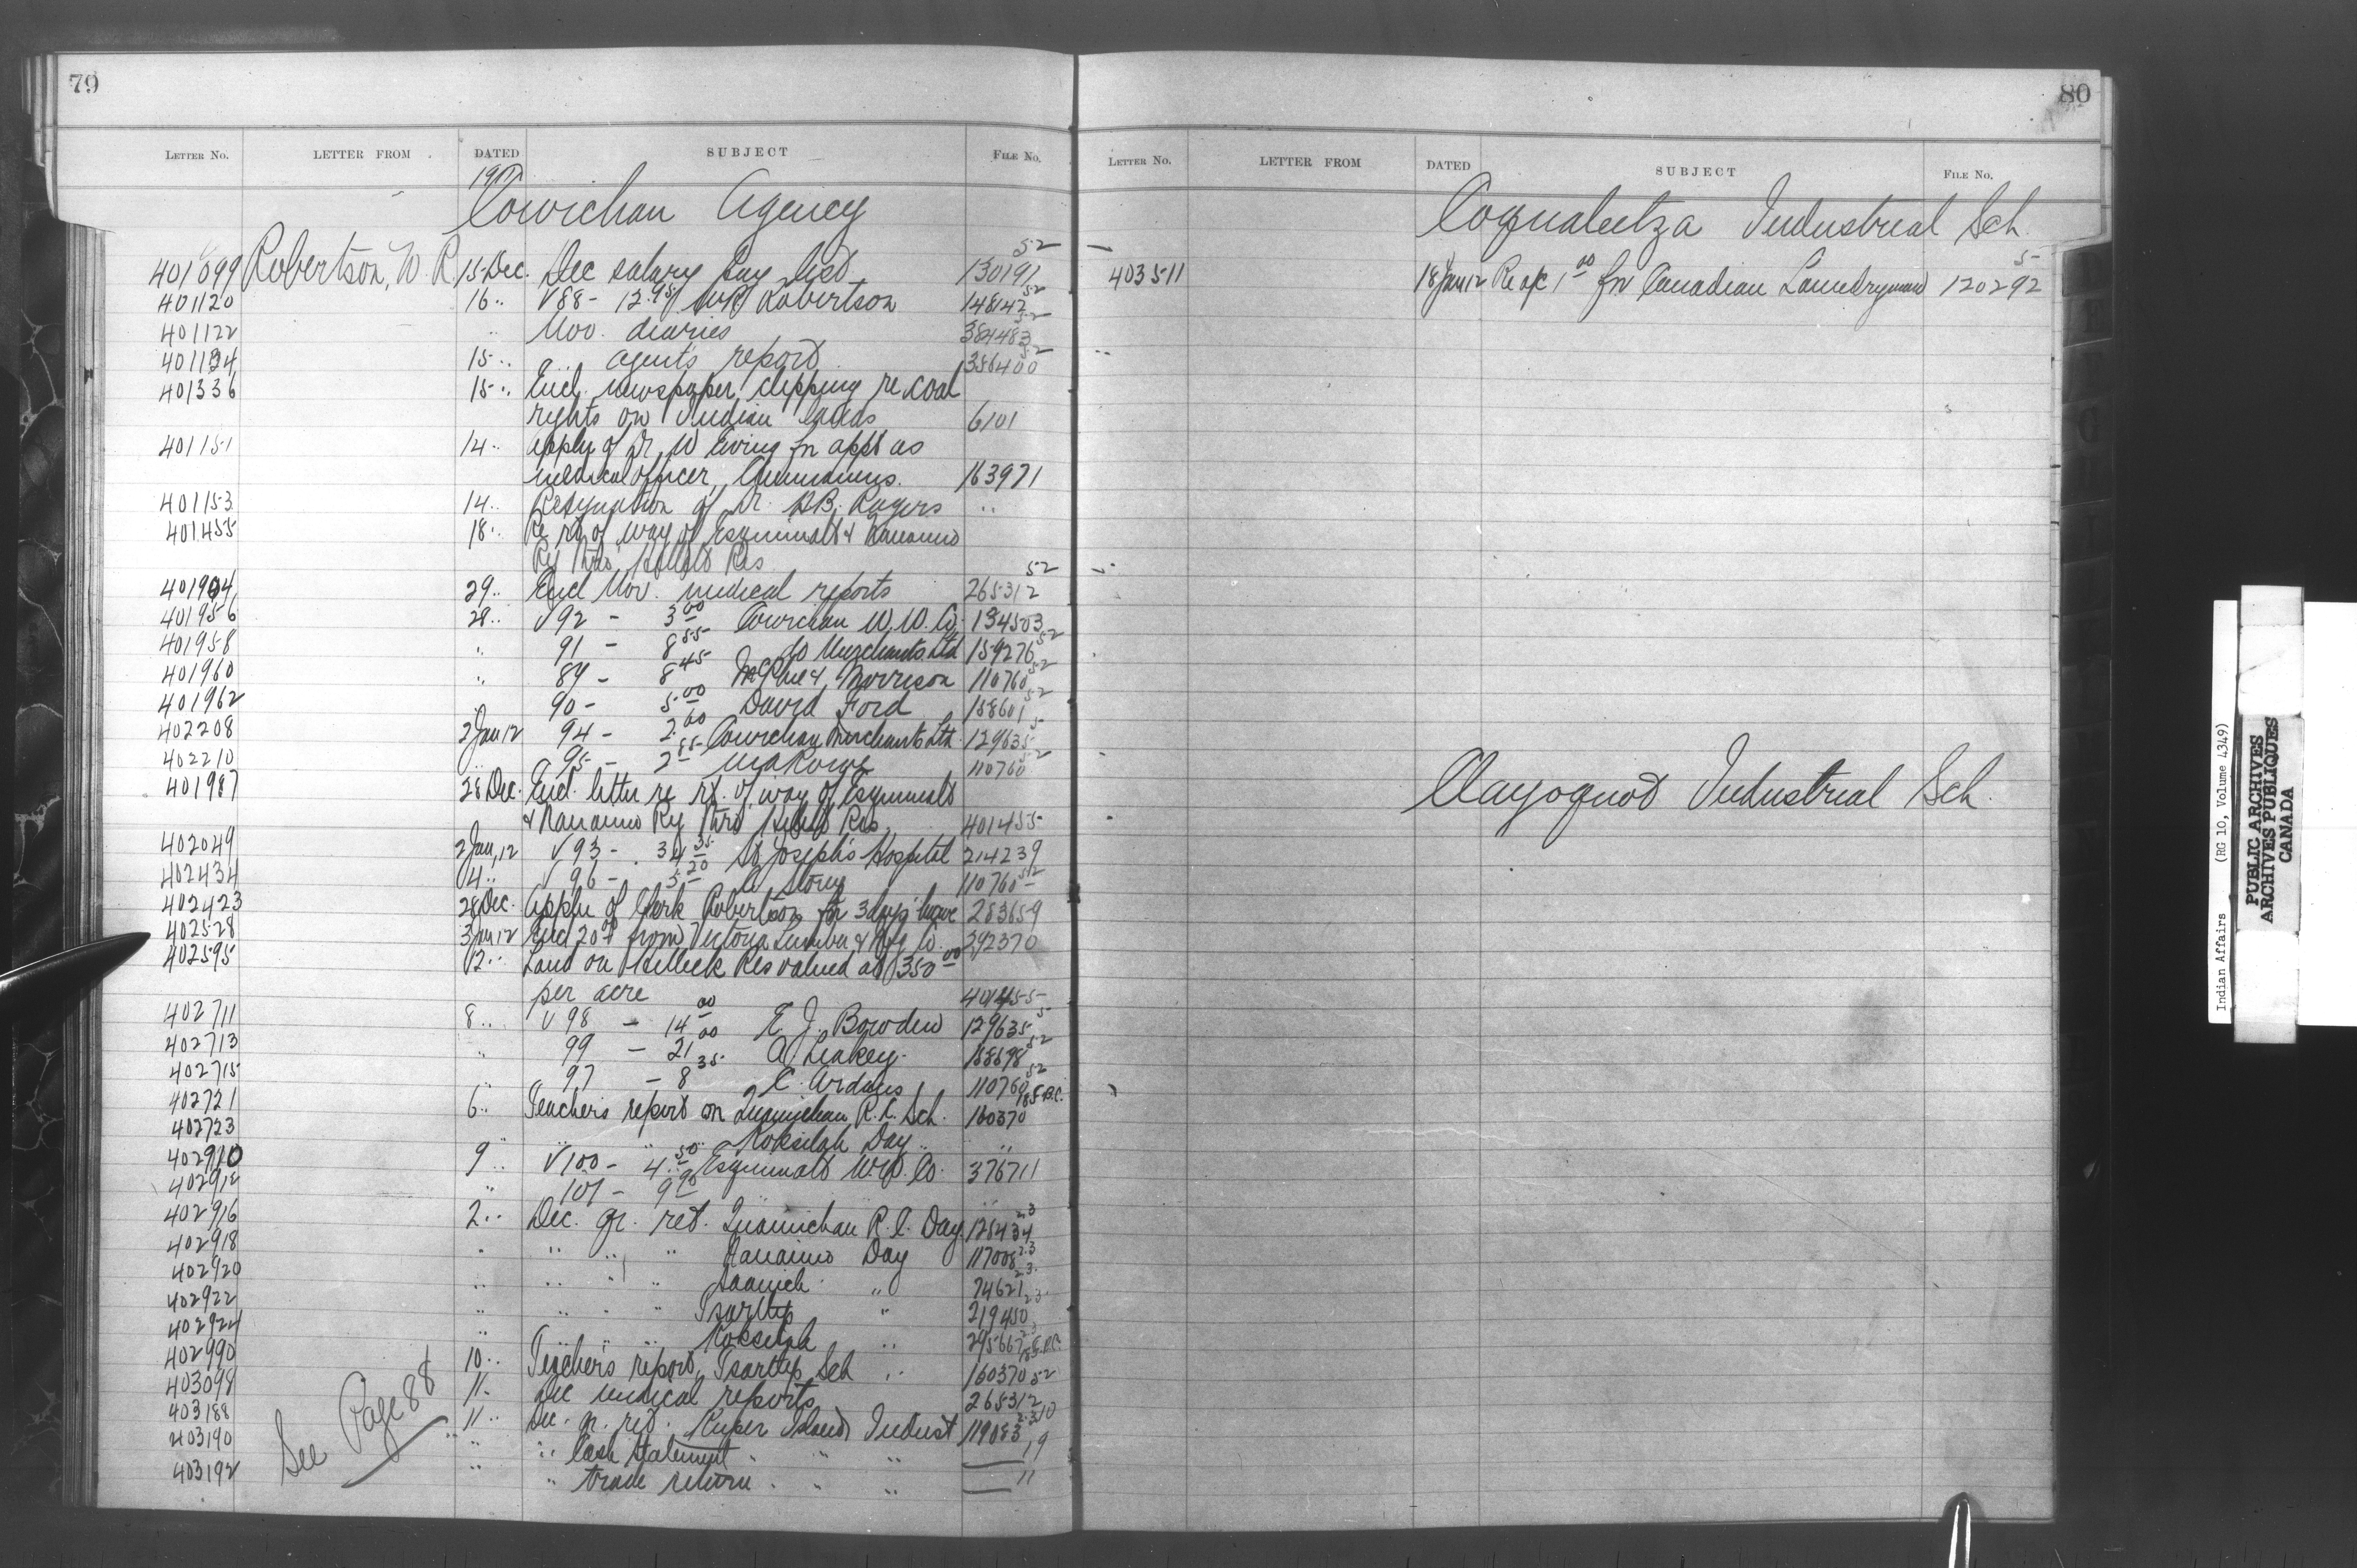 79
LETTER NO. LETTER FROM DATED SUBJECT FILE NO.
Cowichan Agency
401099 Robertson, W. R. 15 Dec. Dec salary pay list 130191 52
401120 16 " V 88 - 12.95 Robertson 148142 52
401122 " Nov. diaries 384483 52
15 " " agents report 386400
401336 15 " Encl. newspaper clipping re coal
rights on Indian lands 6101
401151 14 " Appln of Dr. W Ewing for appt as
medical officer, Chemainus. 163971
401153 14 " Resignation of Dr. Rogers "
401455 18 " Re rt of way of Esquimalt & Nanaimo
Ry thro' Res
29 " Encl Nov. medical reports 265312 52
401956 28 " V 92 - 3.00 Cowichan W. W. Co. 134503
401958 " 91 - 8.55 do Merchants Ltd 159276 52
401960 " 89 - 8.45 McPhee & Morrison 110760 52
401962 90 - 5.00 David Ford 158601 52
402208 2 Jan 12 94 - 2.60 Cowichan Merchants Ltd 129635 5
402210 " 95 - 2.85 110760 52
401987 28 Dec. Encl. letter re rt. of way of Esquimalt
& Nanaimo Ry thro Res 401455
402049 2 Jan, 12 V 93 - 34.35 St Joseph's Hospital 214239
402434 4 " V 96 - 5.20 110760 52
402423 28 Dec. Appln of Clerk Robertson for 3 days' leave 283659
402528 3 Jan 12 Encl 20 from Victoria Lumber & Mfg Co. 392370
402595 12 " Land on Res valued at 350.00
per acre 401455
402711 8 " V 98 - 14.00 E. J. Bowden 129635 5
402713 " 99 - 21.00 A Leakey 52
402715 " 97 - 8.35 110760 52
402721 6 " Teachers report on Quamichan R. C. Sch. 160370
402723 " " " Koksilah Day " "
402910 9 " V 100 - 4.50 Esquimalt W. W. Co. 376711
402912 " 101 - 9.90
402916 2 " Dec. qr. ret. Quamichan R. C. Day 128434 23
402918 " " " " Nanaimo Day 117008 23
402920 " " " " Saanich " 74621 23
402922 " " " " Tsartlip " 219450 23
402924 " " " " Koksilah " 295667
402990 10 " Teachers report, Tsartlip Sch " 160370
403098 11 " Dec medical reports 265312 52
403188 11 " Dec. qr. ret. Kuper Island Indust 119083
403190 " " Cash Statement " " " 19
403192 " " trade return " " " 11
See Page 88
80
LETTER NO. LETTER FROM DATED SUBJECT FILE NO.
Coqualeetza Industrial Sch.
403511 18 Jan 12 Re a/c 1.00 for Canadian Laundryman 120292 5
Clayoquot Industrial Sch.
Indian Affairs (RG 10, Volume 4349)
PUBLIC ARCHIVES
ARCHIVES PUBLIQUES
CANADA